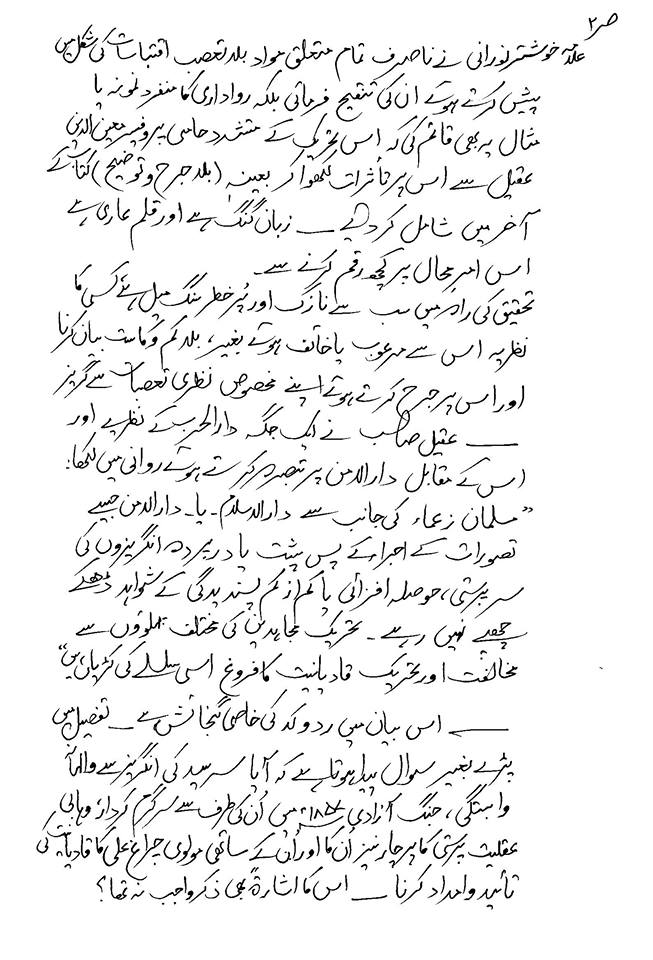 ص۲
علامہ خوشتر نورانی نے نا صرف تمام متعلق مواد بلا تعصب اقتباسات کی شکل میں
پیش کرتے ہوئے ان کی تنقیح فرمائی بلکہ رواداری کا منفرد نمونہ یا
مثال یہ بھی قائم کی کہ اس تحریک کے متشدد حامی پروفیسر معین الدین
عقیل سے اس پر تأثرات لکھوا کر بعینہٖ (بلا جرح و توضیح) کتاب کے
آخر میں شامل کر دیے — زبان گنگ ہے اور قلم عاری ہے
اس امرِ محال پر کچھ رقم کرنے سے۔
تحقیق کی راہ میں سب سے نازک اور پُر خطر سنگ میل ہے کسی کا
نظریہ اس سے مرعوب یا خائف ہوئے بغیر، بلا کم و کاست بیان کرنا
اور اس پر جرح کرتے ہوئے اپنے مخصوص نظری تعصبات سے گریز
— عقیل صاحب نے ایک جگہ دارالحرب کے نظریے اور
اس کے مقابل دارالامن پر تبصرہ کرتے ہوئے روانی میں لکھا:
"مسلمان زعماء کی جانب سے دارالاسلام۔ یا۔ دارالامن جیسے
تصورات کے اجراء کے پس پشت یا درپردہ انگریزوں کی
سرپرستی، حوصلہ افزائی یا کم از کم پسندیدگی کے شواہد ڈھکے
چھپے نہیں رہے۔ تحریک مجاہدین کی مختلف پہلوؤں سے
مخالفت اور تحریک قادیانیت کا فروغ اسی سلسلے کی کڑیاں ہیں"
— اس بیان میں رد و کد کی خاصی گنجائش ہے — تفصیل میں
پڑے بغیر سوال پیدا ہوتا ہے کہ آیا سرسید کی انگریز سے والہانہ
وابستگی، جنگ آزادی ۱۸۵۷ء میں اُن کی طرف سے سرگرم کردار، وہابی
عقلیت پرستی کا پرچار نیز اُن کا اور اُن کے ساتھی مولوی چراغ علی کا قادیانیت کی
تائید و امداد کرنا — اس کا اشارۃً بھی ذکر واجب نہ تھا؟